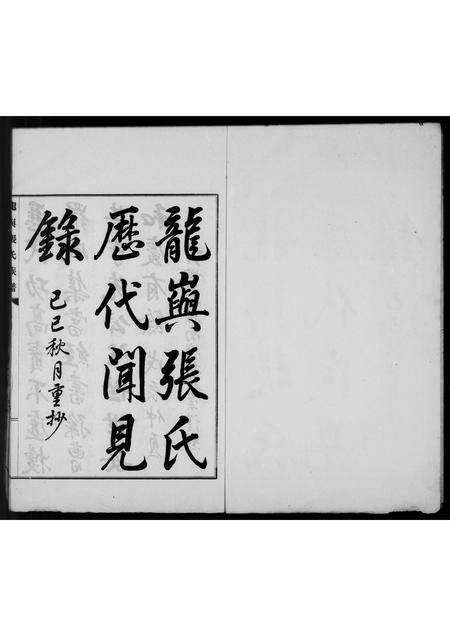 龍嶼張氏
歷代聞見
錄
己巳秋月重抄